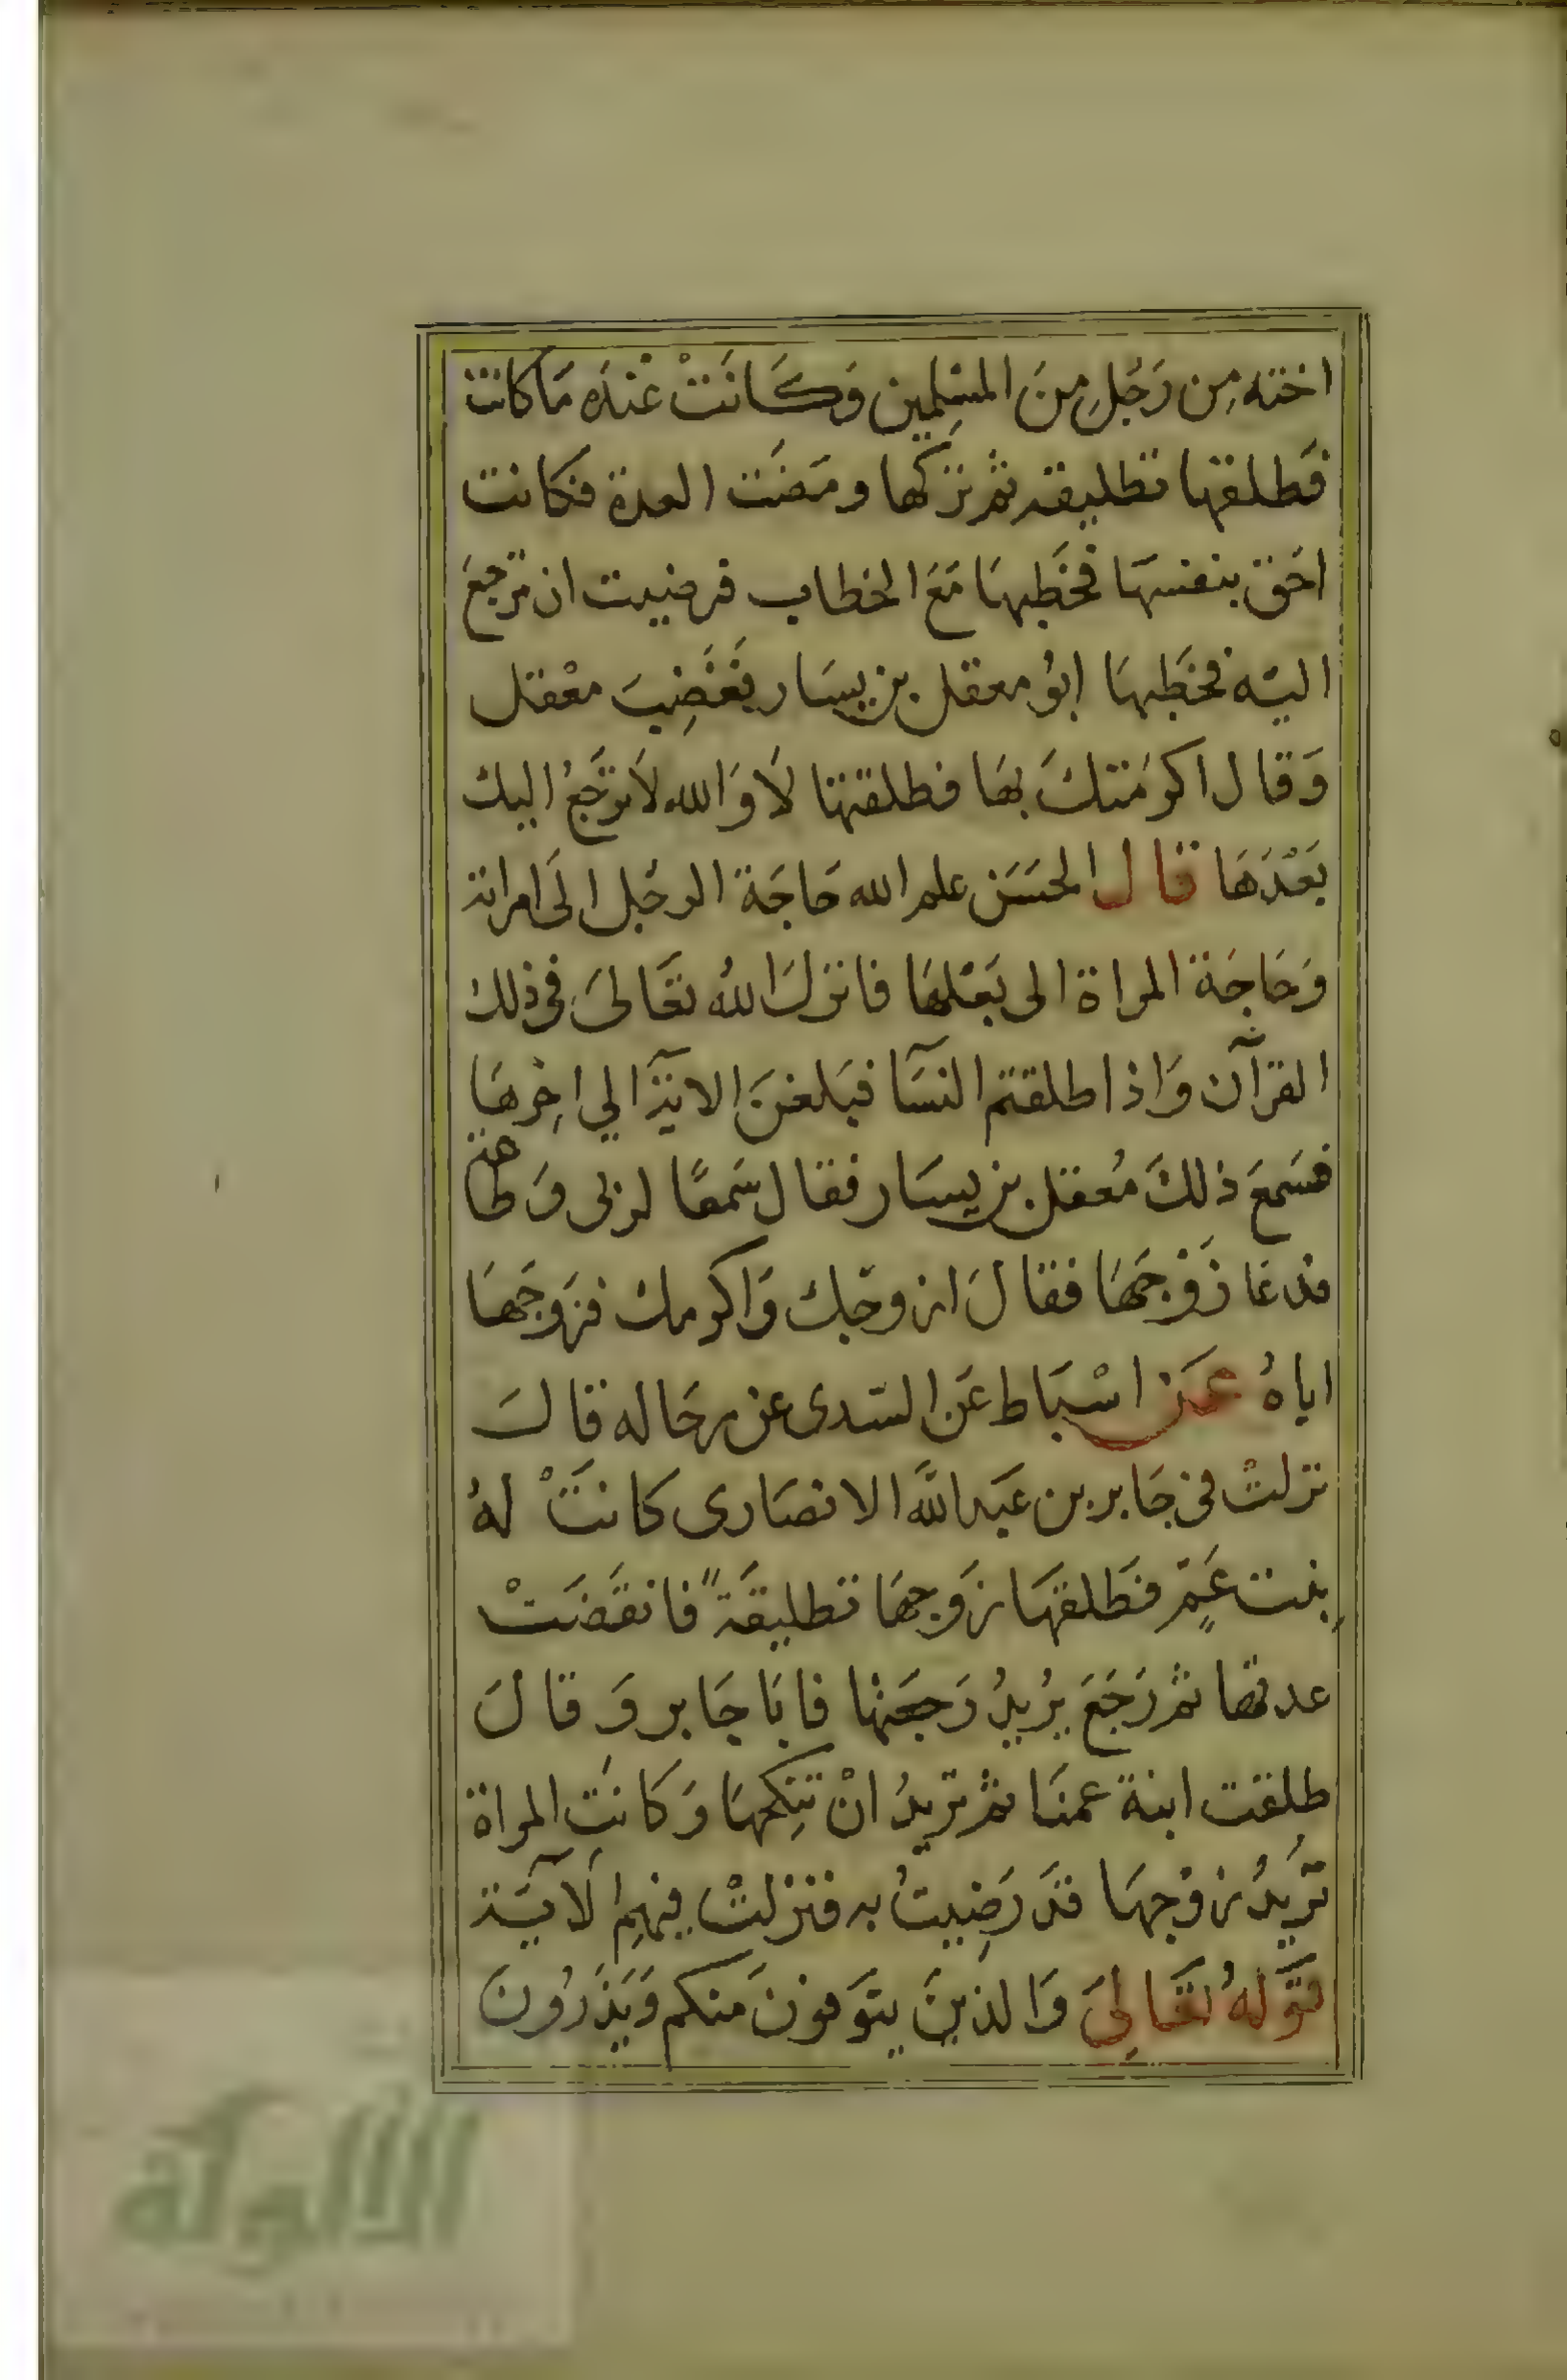 اخته مِن رَجُلٍ مِنَ المسْلِمين وَكَانَتْ عْندَه مَا كانت
فَطلقها تطليقه ثم تركها ومَضَت العدة فكانت
احَق بنفسهَا فخَطبهَا مَعَ الخطاب فرضيت ان ترجعَ
اليْه فخَطبهَا ابُو معقل بن يسَار فغَضِبَ معْقل
وَقال اكرمَتك بهَا فطلقتها لَا وَالله لَا ترَجعُ اليك
بَعْدَهَا قال الحسَن علم الله حَاجَة الرجُل الَى امراته
وَحَاجَة المراة الى بَعْلهَا فانزلَ اللهُ تعَالىَ فى ذلك
القرآن وَاذا طلقتم النسَآ فبَلغنَ الاية الي اخِرهَا
فسَمعَ ذلكَ مُعقل بن يسَار فقال سَمعًا لربى وَطاعة
فدعَا زَوْجهَا فقالَ ازوجَك وَاكرمك فزوجَهَا
اياهُ عَن اسْبَاط عَن السّدى عن رجَاله قالَ
نزلتْ في جَابر بن عَبد اللَّه الانصَارى كَانتَْ لهُ
بِنت عَمٍّ فَطلقهَا زَوجهَا تطليقَةً فانقَضَتْ
عدتها ثم رَجَعَ يُريدُ رَجعَتها فابَا جَابر وَقالَ
طلقت ابنة عمنَا ثم تريدُ انْ تنِكحهَا وَكَانَتِ المراة
تُريدُ زوْجهَا قدَ رَضِيتُ به فنزلتْ فِيهِم الَآيَة
قَولهُ تعَالِىَ وَالذينَ يتوَفونَ منكم وَيَذَرُونَ
الألوكة